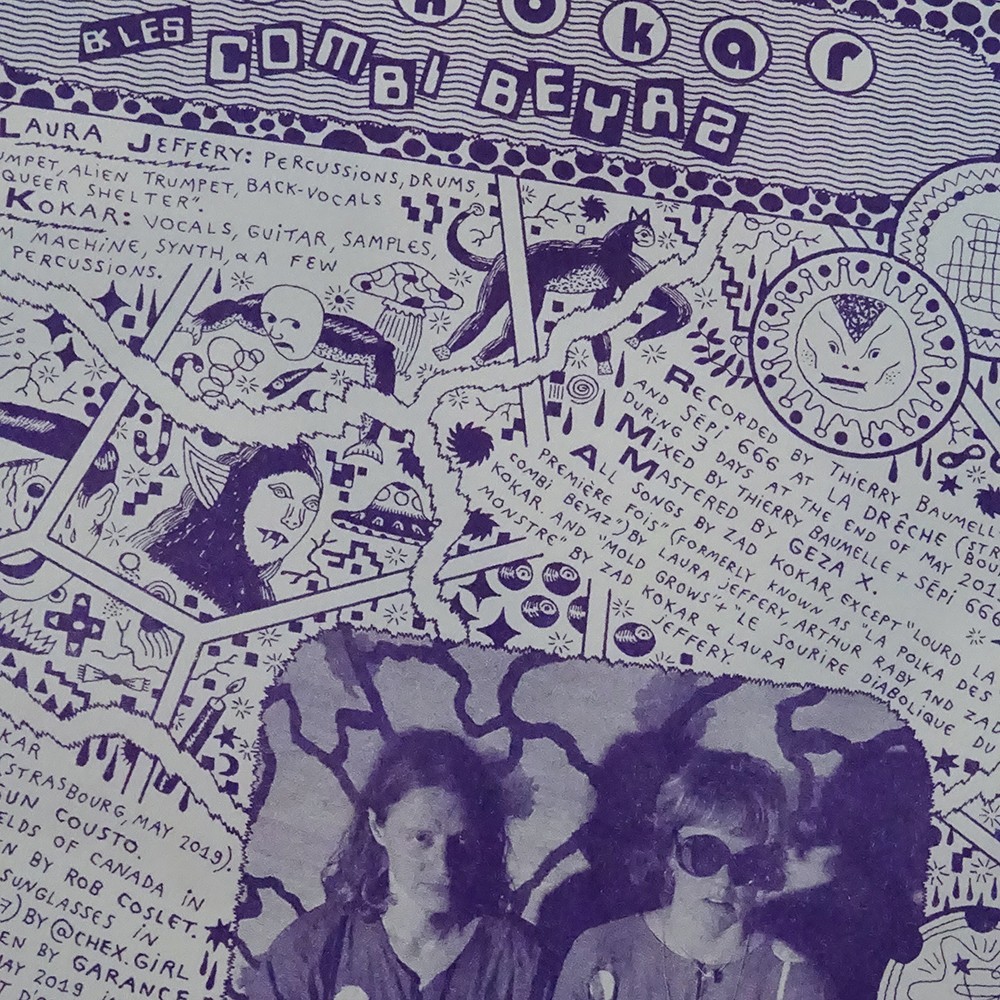 Kokar
& LES
COMBI BEYAZ
LAURA JEFFERY: PERCUSSIONS, DRUMS,
UMPET, ALIEN TRUMPET, BACK-VOCALS
QUEER SHELTER".
KOKAR: VOCALS, GUITAR, SAMPLES,
M MACHINE, SYNTH, & A FEW
PERCUSSIONS.
RECORDED BY THIERRY BAUMELL
AND SËPI 666 AT LA DRÊCHE (STRA
DURING 3 DAYS AT THE END OF MAY 201
MIXED BY THIERRY BAUMELLE + SËPI 666
MASTERED BY GEZA X.
ALL SONGS BY ZAD KOKAR EXCEPT "LOURD LA
PREMIÈRE FOIS" (FORMERLY KNOWN AS "LA POLKA DES
COMBI BEYAZ") BY LAURA JEFFERY, ARTHUR RABY AND ZAD
KOKAR. AND "MOLD GROWS" + "LE SOURIRE DIABOLIQUE DU
MONSTRE" BY ZAD KOKAR & LAURA
JEFFERY.
KAR
(STRASBOURG, MAY 2019).
GUN COUSTO.
ELDS OF CANADA IN
EN BY ROB COSLET.
SUNGLASSES IN
7) BY @CHEX.GIRL
EN BY GARANCE
MAY 2019 in